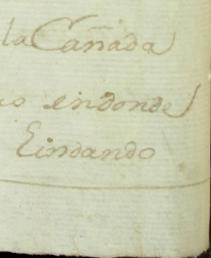 la Cañada
endonde
Lindando